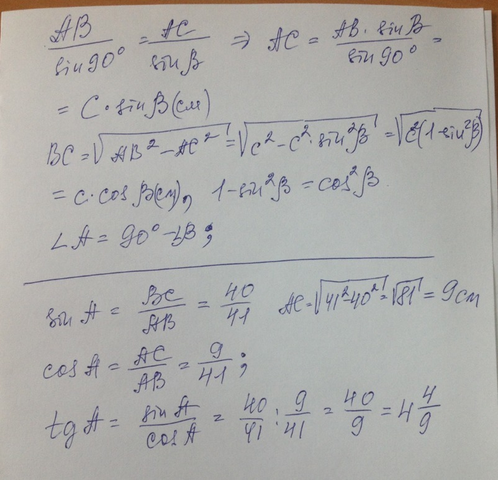 AB/sin90° = AC/sinβ ⇒ AC = AB·sinβ/sin90° =
= C·sinβ(см)
BC = √(AB² − AC²) = √(c² − c²·sin²β) = √(c²(1−sin²β))
= c·cosβ(см), 1−sin²β = cos²β
∠A = 90° − ∠B;
sinA = BC/AB = 40/41 AC = √(41²−40²) = √81 = 9см
cosA = AC/AB = 9/41;
tgA = sinA/cosA = 40/41 : 9/41 = 40/9 = 4 4/9